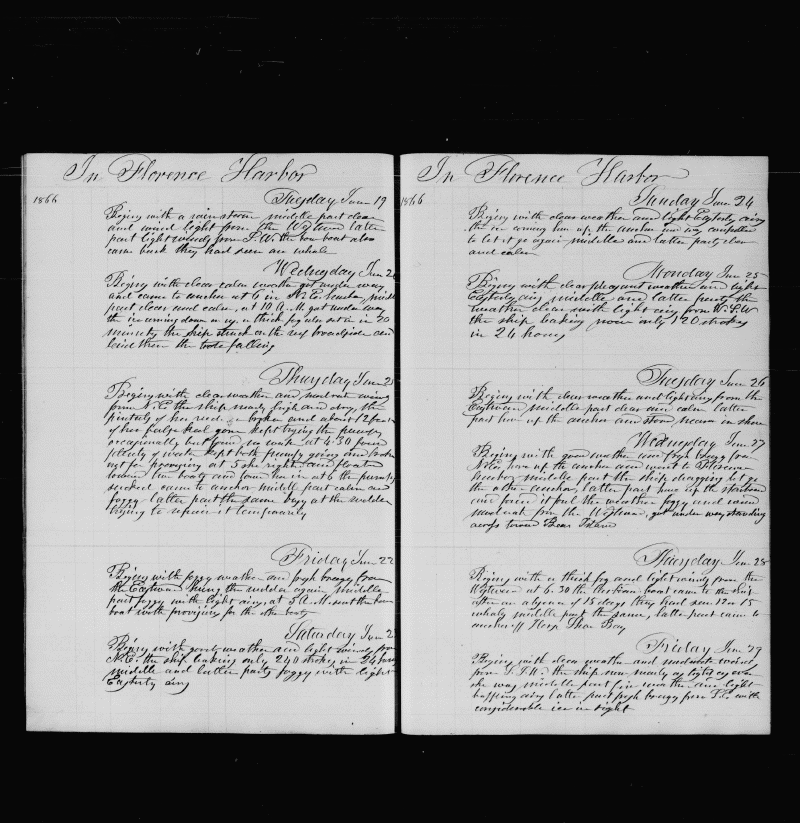 In Florence Harbor
1866
Tuesday June 19
Begins with a rainstorm middle part clear
and wind light from the Westward latter
part light winds from S.W. the bow boat also
came back they had seen no whale
Wednesday Jun 2
Begins with clear calm weather got under way
and came to anchor at 6 in N.E. harbor, middle
part clear and calm, at 10 A.M. got under way
the ice coming down on us a thick fog also set in in 20
minutes the ship struck on the reef broadside and
laid there the tide falling
Thursday June 21
Begins with clear weather and moderate wind
from N.E. the ship nearly high and dry, the
pintals of her rudder broken and about 12 feet
of her false keel gone kept trying the pumps
occasionally but found no water at 4.30 found
plenty of water kept both pumps going and broke
out for provisions at 5 she righted and floated
lowered two boats and towed her in at 6 the pumps
sucked came to anchor middle part calm and
foggy latter part the same busy at the rudder
trying to repair it temporarily
Friday June 22
Begins with foggy weather and fresh breezes from
the Eastward hung the rudder again middle
part foggy with light airs, at 5 A.M. sent the
boat with provisions for the other boats
Saturday June 2
Begins with good weather and light winds from
N.E. the ship leaking only 240 strokes in 24 hours
middle and latter parts foggy with light
Easterly airs
In Florence Harbor
1866
Sunday June 24
Begins with clear weather and light Easterly airs
the ice coming hove up the anchor and was compelled
to let it go again middle and latter parts clear
and calm
Monday June 25
Begins with clear pleasant weather and light
Easterly airs middle and latter parts the
weather clear with light airs from W.S.W
the ship leaking now only 120 strokes
in 24 hours
Tuesday June 26
Begins with clear weather and light airs from the
Eastward middle part clear and calm latter
part hove up the anchor and stood nearer in shore
Wednesday June 27
Begins with good weather and fresh breezes from
N.E. hove up the anchor and went to Florence
harbor middle part the ship dragging let go
the other anchor, latter part hove up the starboard
and found it foul the weather foggy and wind
moderate from the Westward, got under way standing
across toward Bear Island
Thursday June 28
Begins with a thick fog and light winds from the
Westward at 6.30 the boat came to the ship
after an absence of 15 days they had seen 12 or 15
whales middle part the same, latter part came to
anchor off Bay
Friday June 29
Begins with clear weather and moderate winds
from the ship now nearly as tight as ever
she was middle part fine weather and light
baffling airs latter part fresh breezes from S.E. with
considerable ice in sight